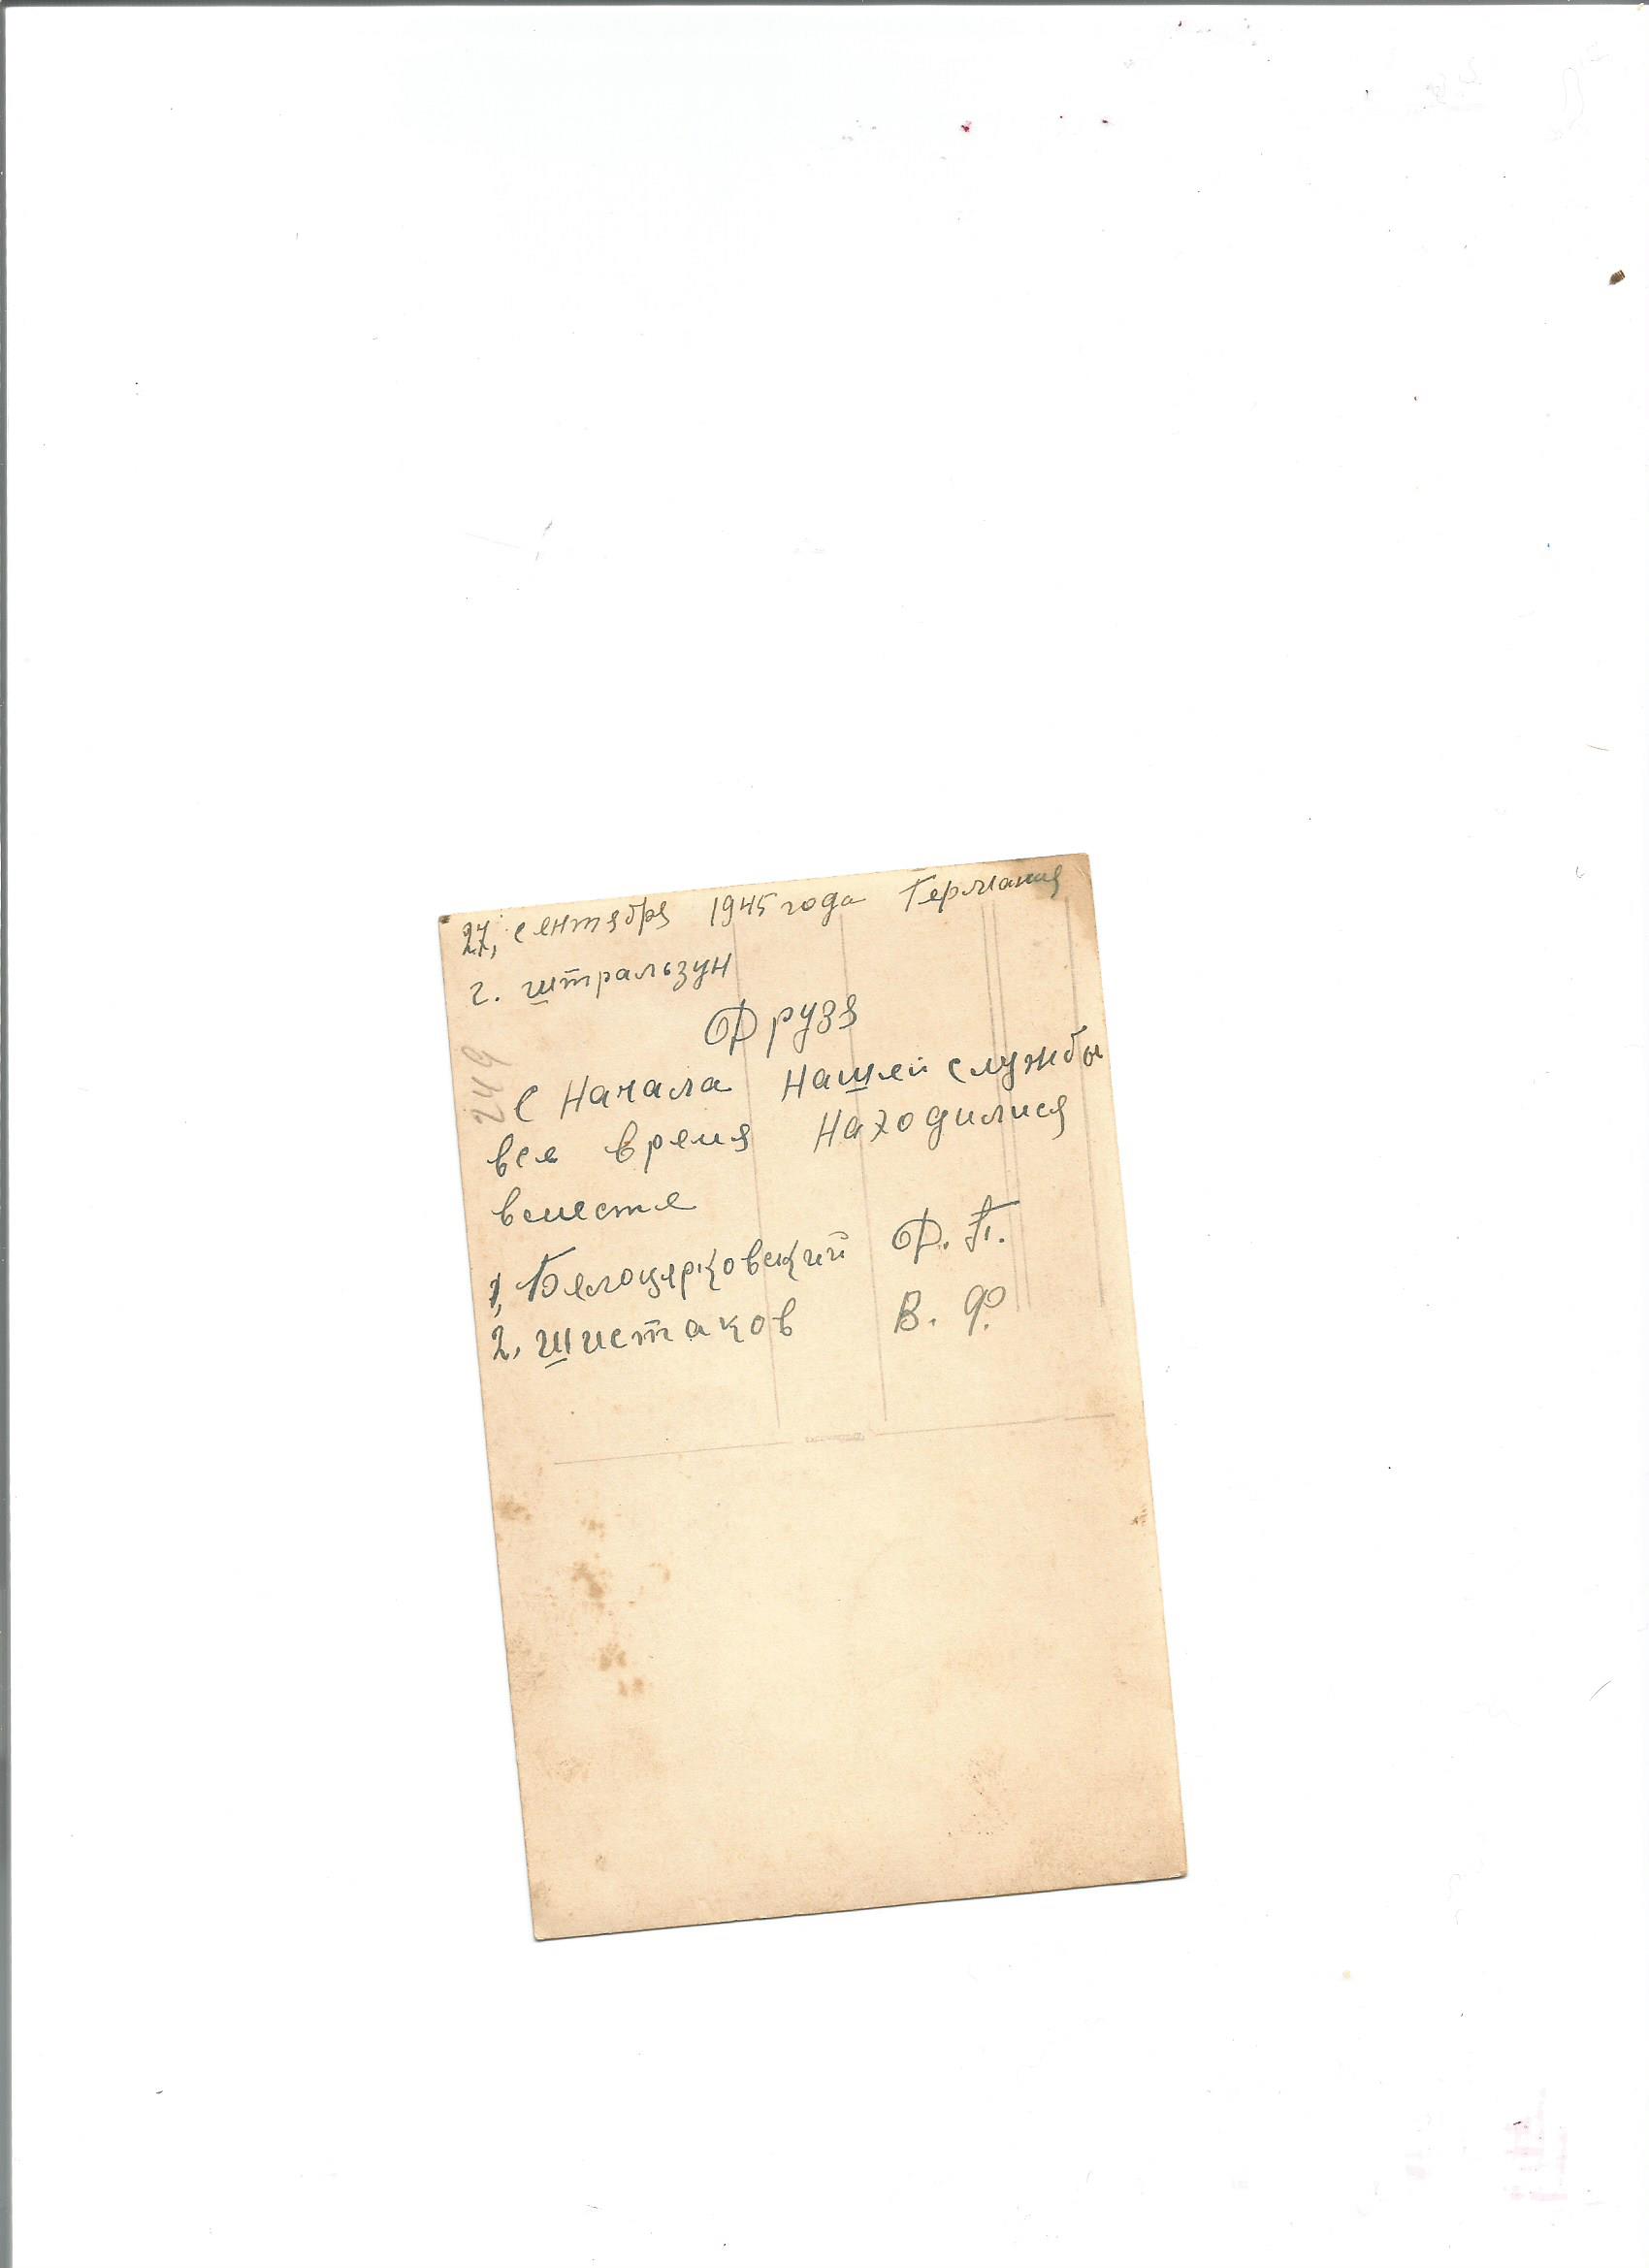 27, сентября 1945 года Германия
г. штральзун
Друзя
с Начала Нашей службы
все время Находился
вместе
1, Белоцерковский Ф. П.
2, шистаков В. Ф.
249